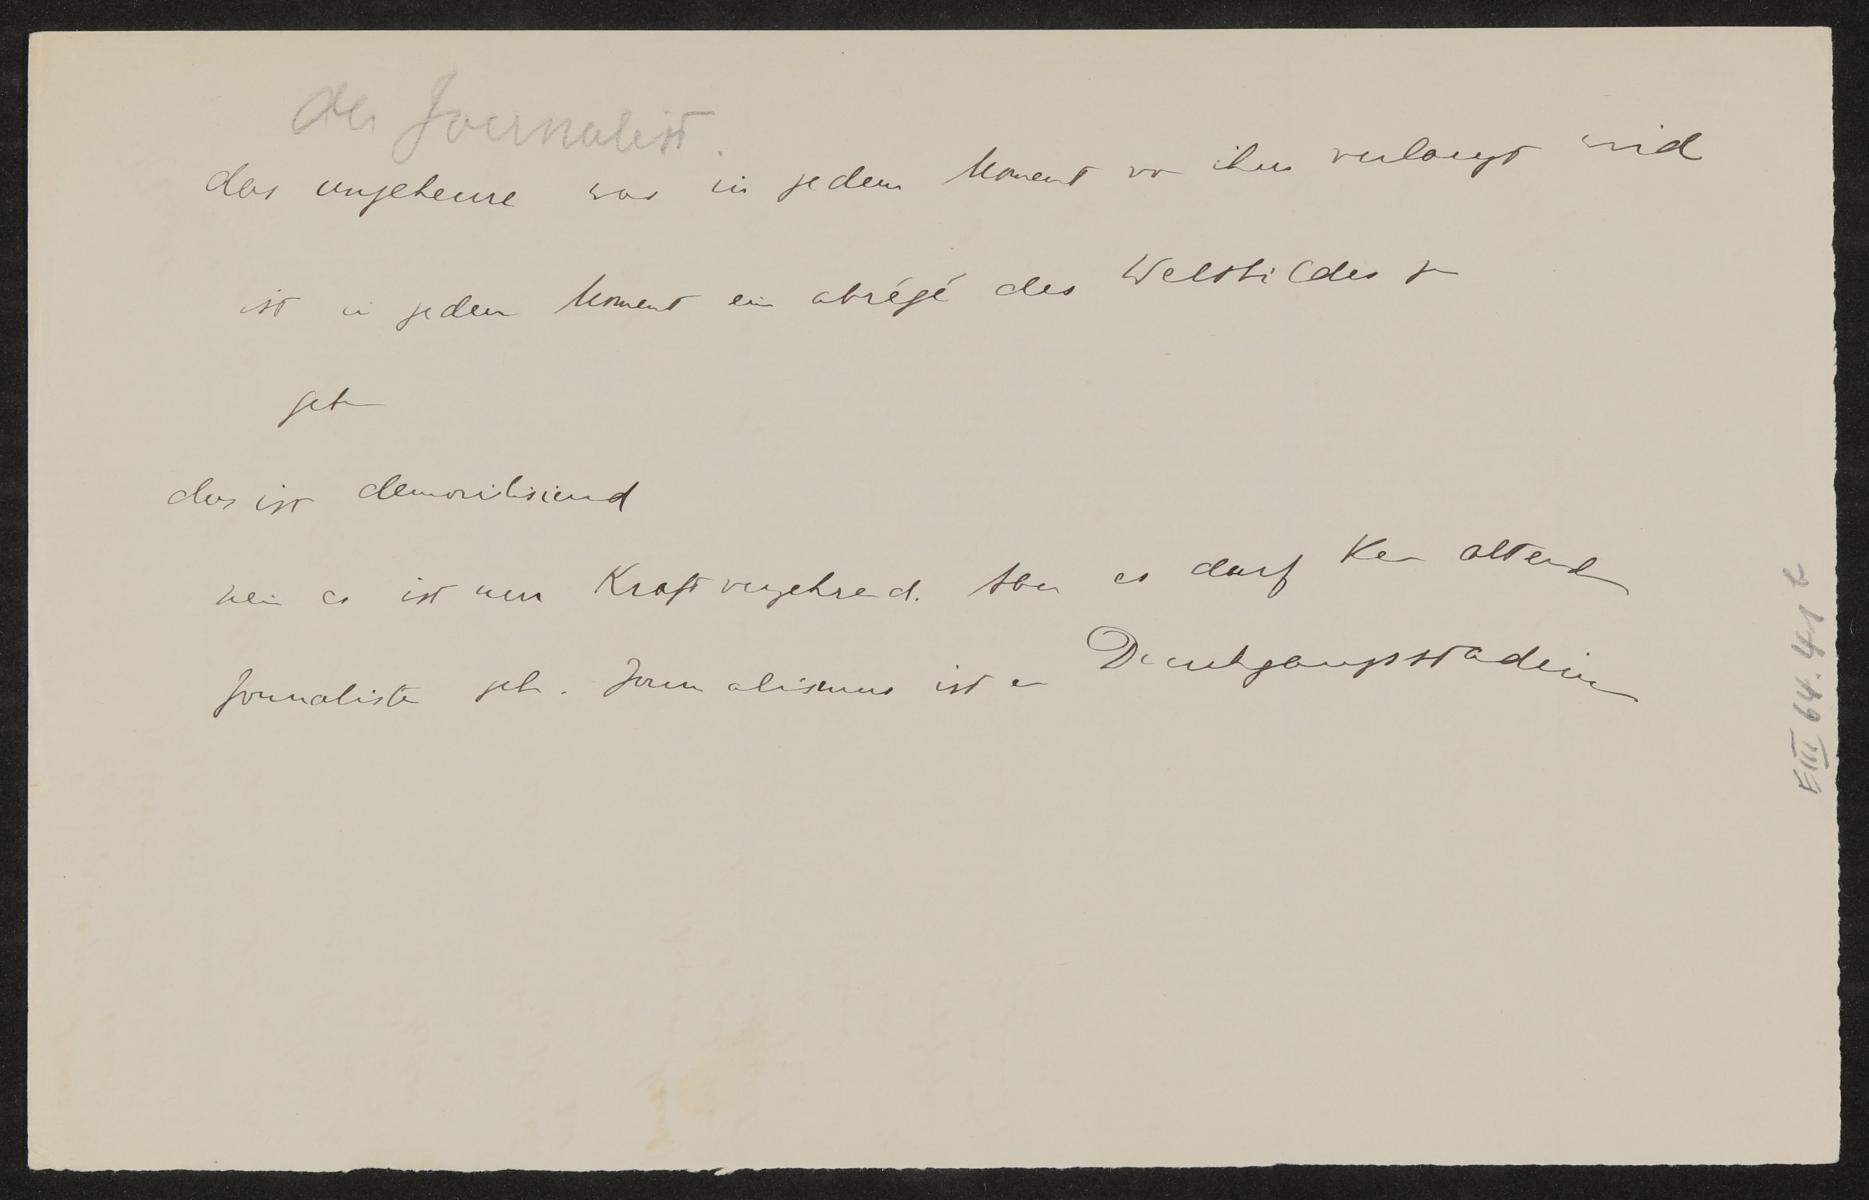 der Journalist.
das ungeheure was in jedem Moment von ihm verlangt wird
ist in jedem Moment ein abrégé des Weltbildes zu
geben
das ist demoralisierend
nein es ist nur Kraftverzehrend. Aber es darf keine alternden
Journalisten geben. Journalismus ist ein Durchgangsstadium
E III 64.41 b